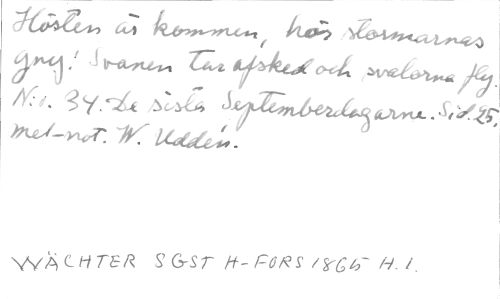 Hösten är kommen, hör stormarnas
gny! Svanen tar afsked och svalorna fly.
N:o. 34. De sista Septemberdagarne. Sid. 25.
met-not. W. Uddén.
WÄCHTER SGST H-FORS 1865 H.1.